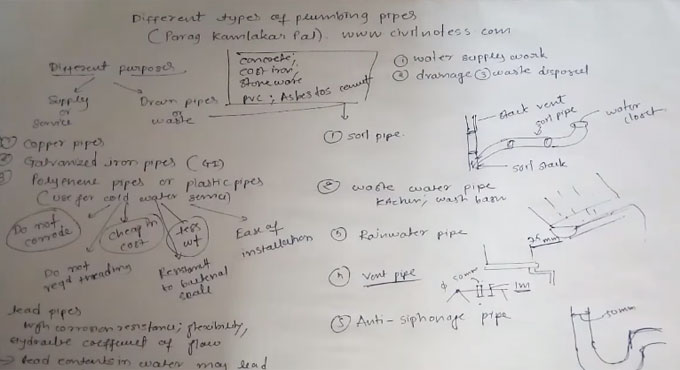 Different types of plumbing pipes
(Parag Kamlakar Pal). www civilnotess.com
Different purposes
Supply
or
service
Drain pipes
or
waste
concrete;
cost iron,
stoneware
PVC; Asbestos cement
① water supply work
② drainage ③ waste disposal
① Copper pipes
② Galvanized iron pipes (GI)
③ Polyenene pipes or plastic pipes
(use for cold water service)
Do not
corrode
cheap in
cost
less
wt
Ease of
installation
Do not
reqd threading
Resistant
to bacterial
scale
lead pipes
high corrosion resistance; flexibility,
Hydraulic coefficient of flow
→ lead contents in water may lead
① soil pipe.
stack vent
soil pipe
water
closet
soil stack
② waste water pipe
kitchen; wash basin
③ Rainwater pipe
75mm
④ vent pipe
ϕ 50mm
1m
⑤ Anti-siphonage pipe
50mm